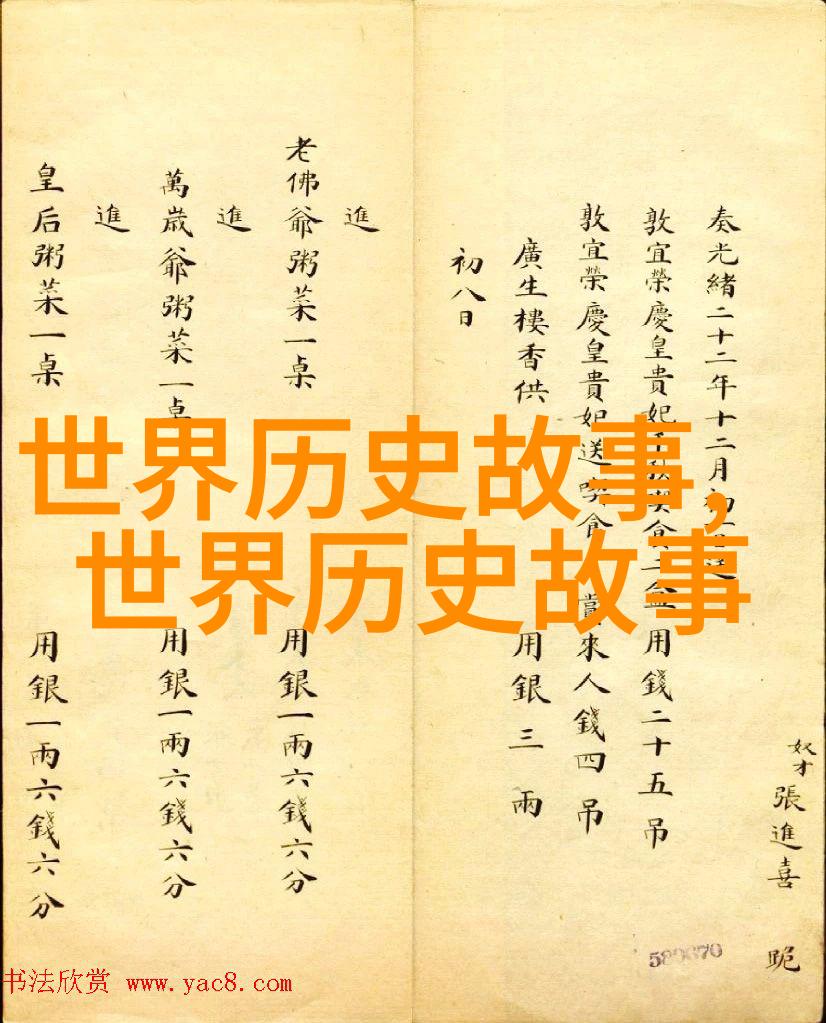 奴才張進喜 跪
奏光緒二十二年十二月初
敦宜榮慶皇貴妃 喫食 盒 用錢二十五吊
敦宜榮慶皇貴妃送喫食 賞來人錢四吊
廣生樓香供 用銀三兩
初八日
進
老佛爺粥菜一桌 用銀一兩六錢六分
進
萬歲爺粥菜一桌 用銀一兩六錢六分
進
皇后粥菜一桌 用銀一兩六錢六分
世界历史故事,
世界历史故事
书法欣赏 www.yac8.com